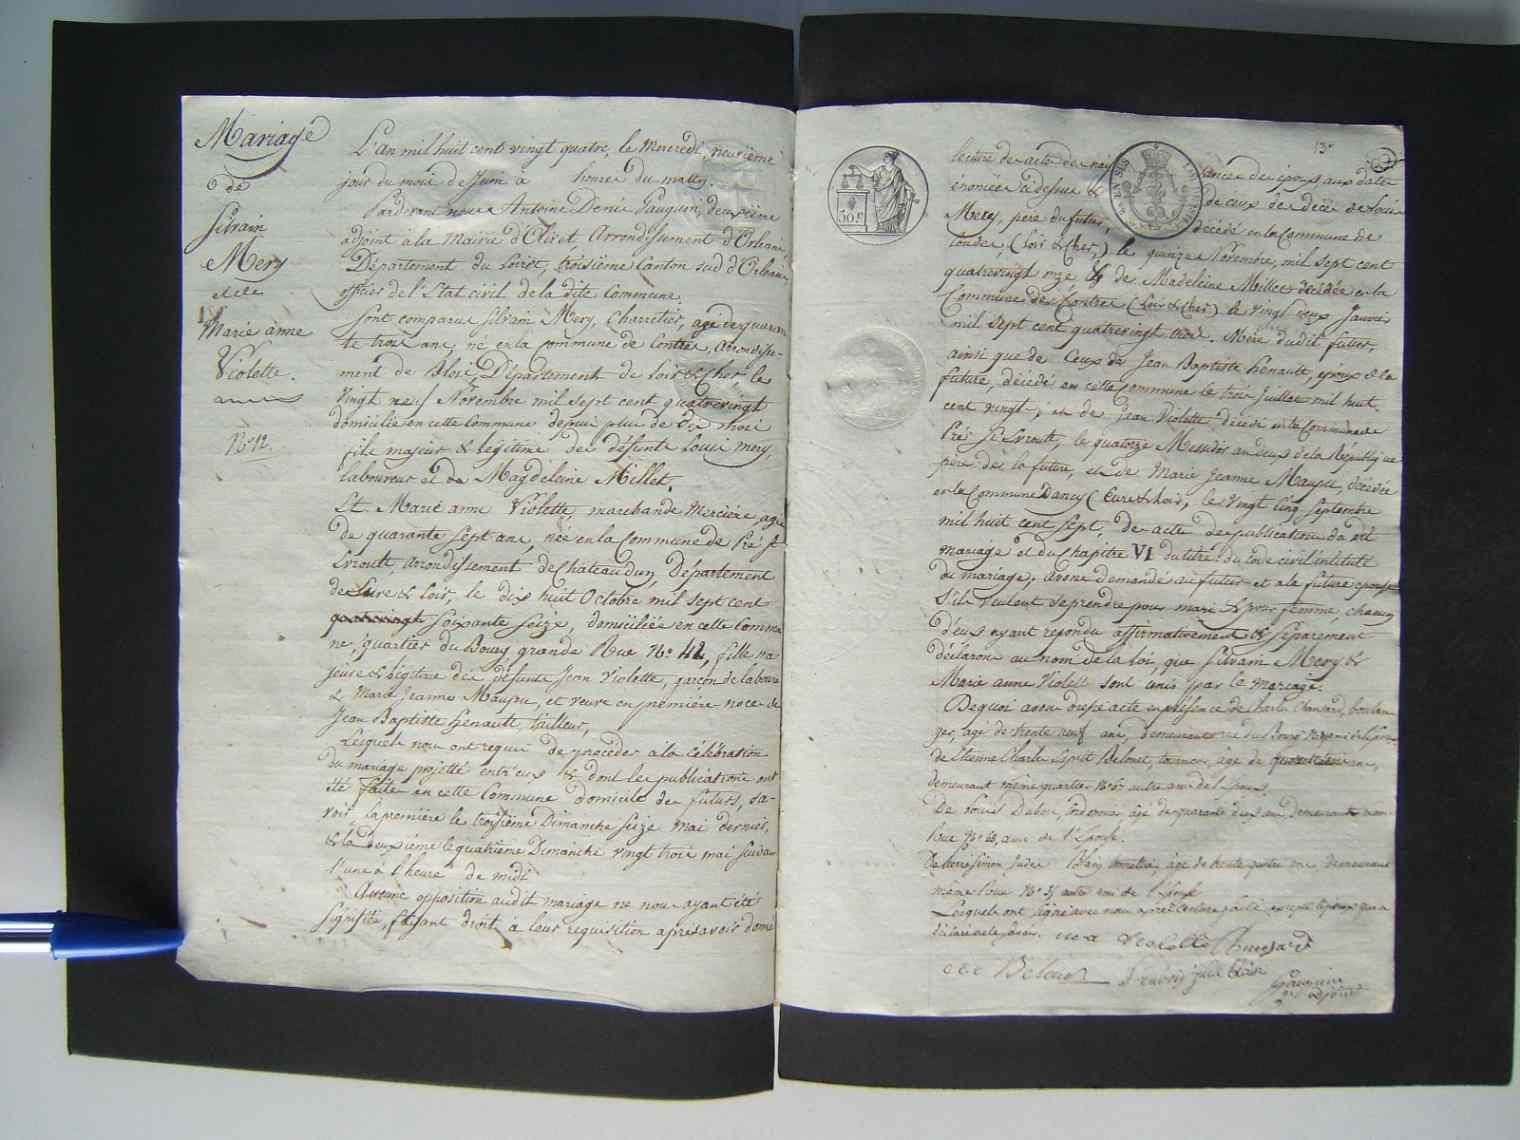 Mariage
de
Silvain
Mery
et de
Marie anne
Violette.
N.° 12.
L'An mil huit cent vingt quatre, le Mercredi, neuvième
jour du mois de Juin à heures du matin.
Pardevant nous Antoine Denis Gauguin, deuxième
adjoint à la Mairie d'Olivet, Arrondissement d'Orléans,
Département du Loiret, troisième Canton sud d'Orléans,
officier de l'Etat civil de la dite Commune.
Sont comparus Silvain Mery, Charretier, agé de quaran
te trois ans, né en la commune de Contres, arrondisse-
ment de Blois, Département de Loir & Cher, le
vingt neuf Novembre mil sept cent quatrevingt
domicilié en cette Commune depuis plus de dix mois
fils majeur & légitime des défunts Louis mery,
laboureur et de Magdeleine Millet.
Et Marie anne Violette, marchande Mercière, agée
de quarante sept ans, née en la Commune de Pré St
Evroult, arrondissement de Chateaudun, Département
de Eure & Loir, le dix huit Octobre mil sept cent
quatrevingt soixante seize, domiciliée en cette Commu
ne, quartier du Bourg grande Rue N.° 42, fille ma
jeure & légitime des défunts Jean Violette, garçon de labour
& Marie Jeanne Maupu, et veuve en première noce de
Jean Baptiste henault, tailleur,
Lesquels nous ont requis de procéder à la célébration
du mariage projetté entr'eux & dont les publications ont
été faites en cette Commune domicile des futurs, sa-
voir, la première le troisième Dimanche seize mai dernier,
& la deuxième le quatrième Dimanche vingt trois mai suivant
l'une à l'heure de midi
Aucune opposition audit mariage ne nous ayant été
signifiée, faisant droit à leur requisition après avoir donné
13.
lecture des actes de naissances des époux aux dates
énoncées ci dessus & de ceux de décès de Louis
Mery, père du futur, décédé en la Commune de
(Loir & Cher,) le quinze Novembre, mil sept cent
quatrevingt onze & de Madeleine Millet décédée en la
Commune de Contres (Loir & Cher) le vingt deux Janvier
mil sept cent quatrevingt trois. Mère dudit futur,
ainsi que de Ceux de Jean Baptiste henault, epoux de la
future, décédé en cette commune le trois Juillet mil huit
cent vingt, et de Jean Violette décédé en la Commune de
Pré St Evroult, le quatorze Messidor an deux de la République
père de la future, et de Marie Jeanne Maupu, décédée
en la Commune Dancy (Eure & Loir), le vingt cinq septembre
mil huit cent sept, des actes de publications du dit
mariage et du chapitre VI du titre du code civil intitulé
du mariage. avons demandé au futur et a la future epouse
S'ils veulent se prendre pour mari & pour femme, chacun
d'eux ayant répondu affirmativement & séparément
déclarons au nom de la loi, que Silvain Mery &
Marie anne Violette sont unis par le mariage.
De quoi avons dressé acte en présence de Charles Chansard, boulan
ger, agé de trente neuf ans, demeurant rue du Bourg
de Etienne Charles Esprit Belouet, tourneur, agé de ans,
demeurant même quartier N.° autre ami de l'époux.
De Louis Dubois, âgé de quarante deux ans, demeurant même
Rue N.° 68, ami de l'Epouse.
De Pierre Simon Jude Blain, agé de trente quatre ans demeurant
même Rue N.° 35 autre ami de l'épouse
Lesquels ont signé avec nous après lecture faite excepté l'époux qui a
déclaré ne le savoir.
Violette Chansard
Belouet Dubois jude blain
Gauguin
adjoint
50 c.